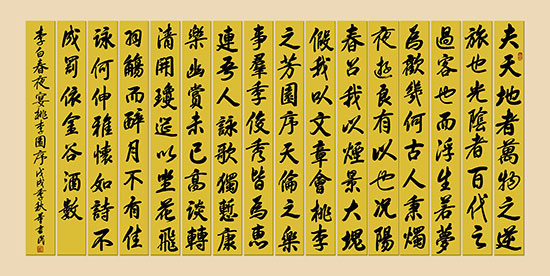 夫天地者萬物之逆
旅也光陰者百代之
過客也而浮生若夢
為歡幾何古人秉燭
夜遊良有以也況陽
春召我以煙景大塊
假我以文章會桃李
之芳園序天倫之樂
事羣季俊秀皆為惠
連吾人詠歌獨慙康
樂幽賞未已高談轉
清開瓊筵以坐花飛
羽觴而醉月不有佳
詠何伸雅懷如詩不
成罰依金谷酒數
李白春夜宴桃李園序戊戌季秋